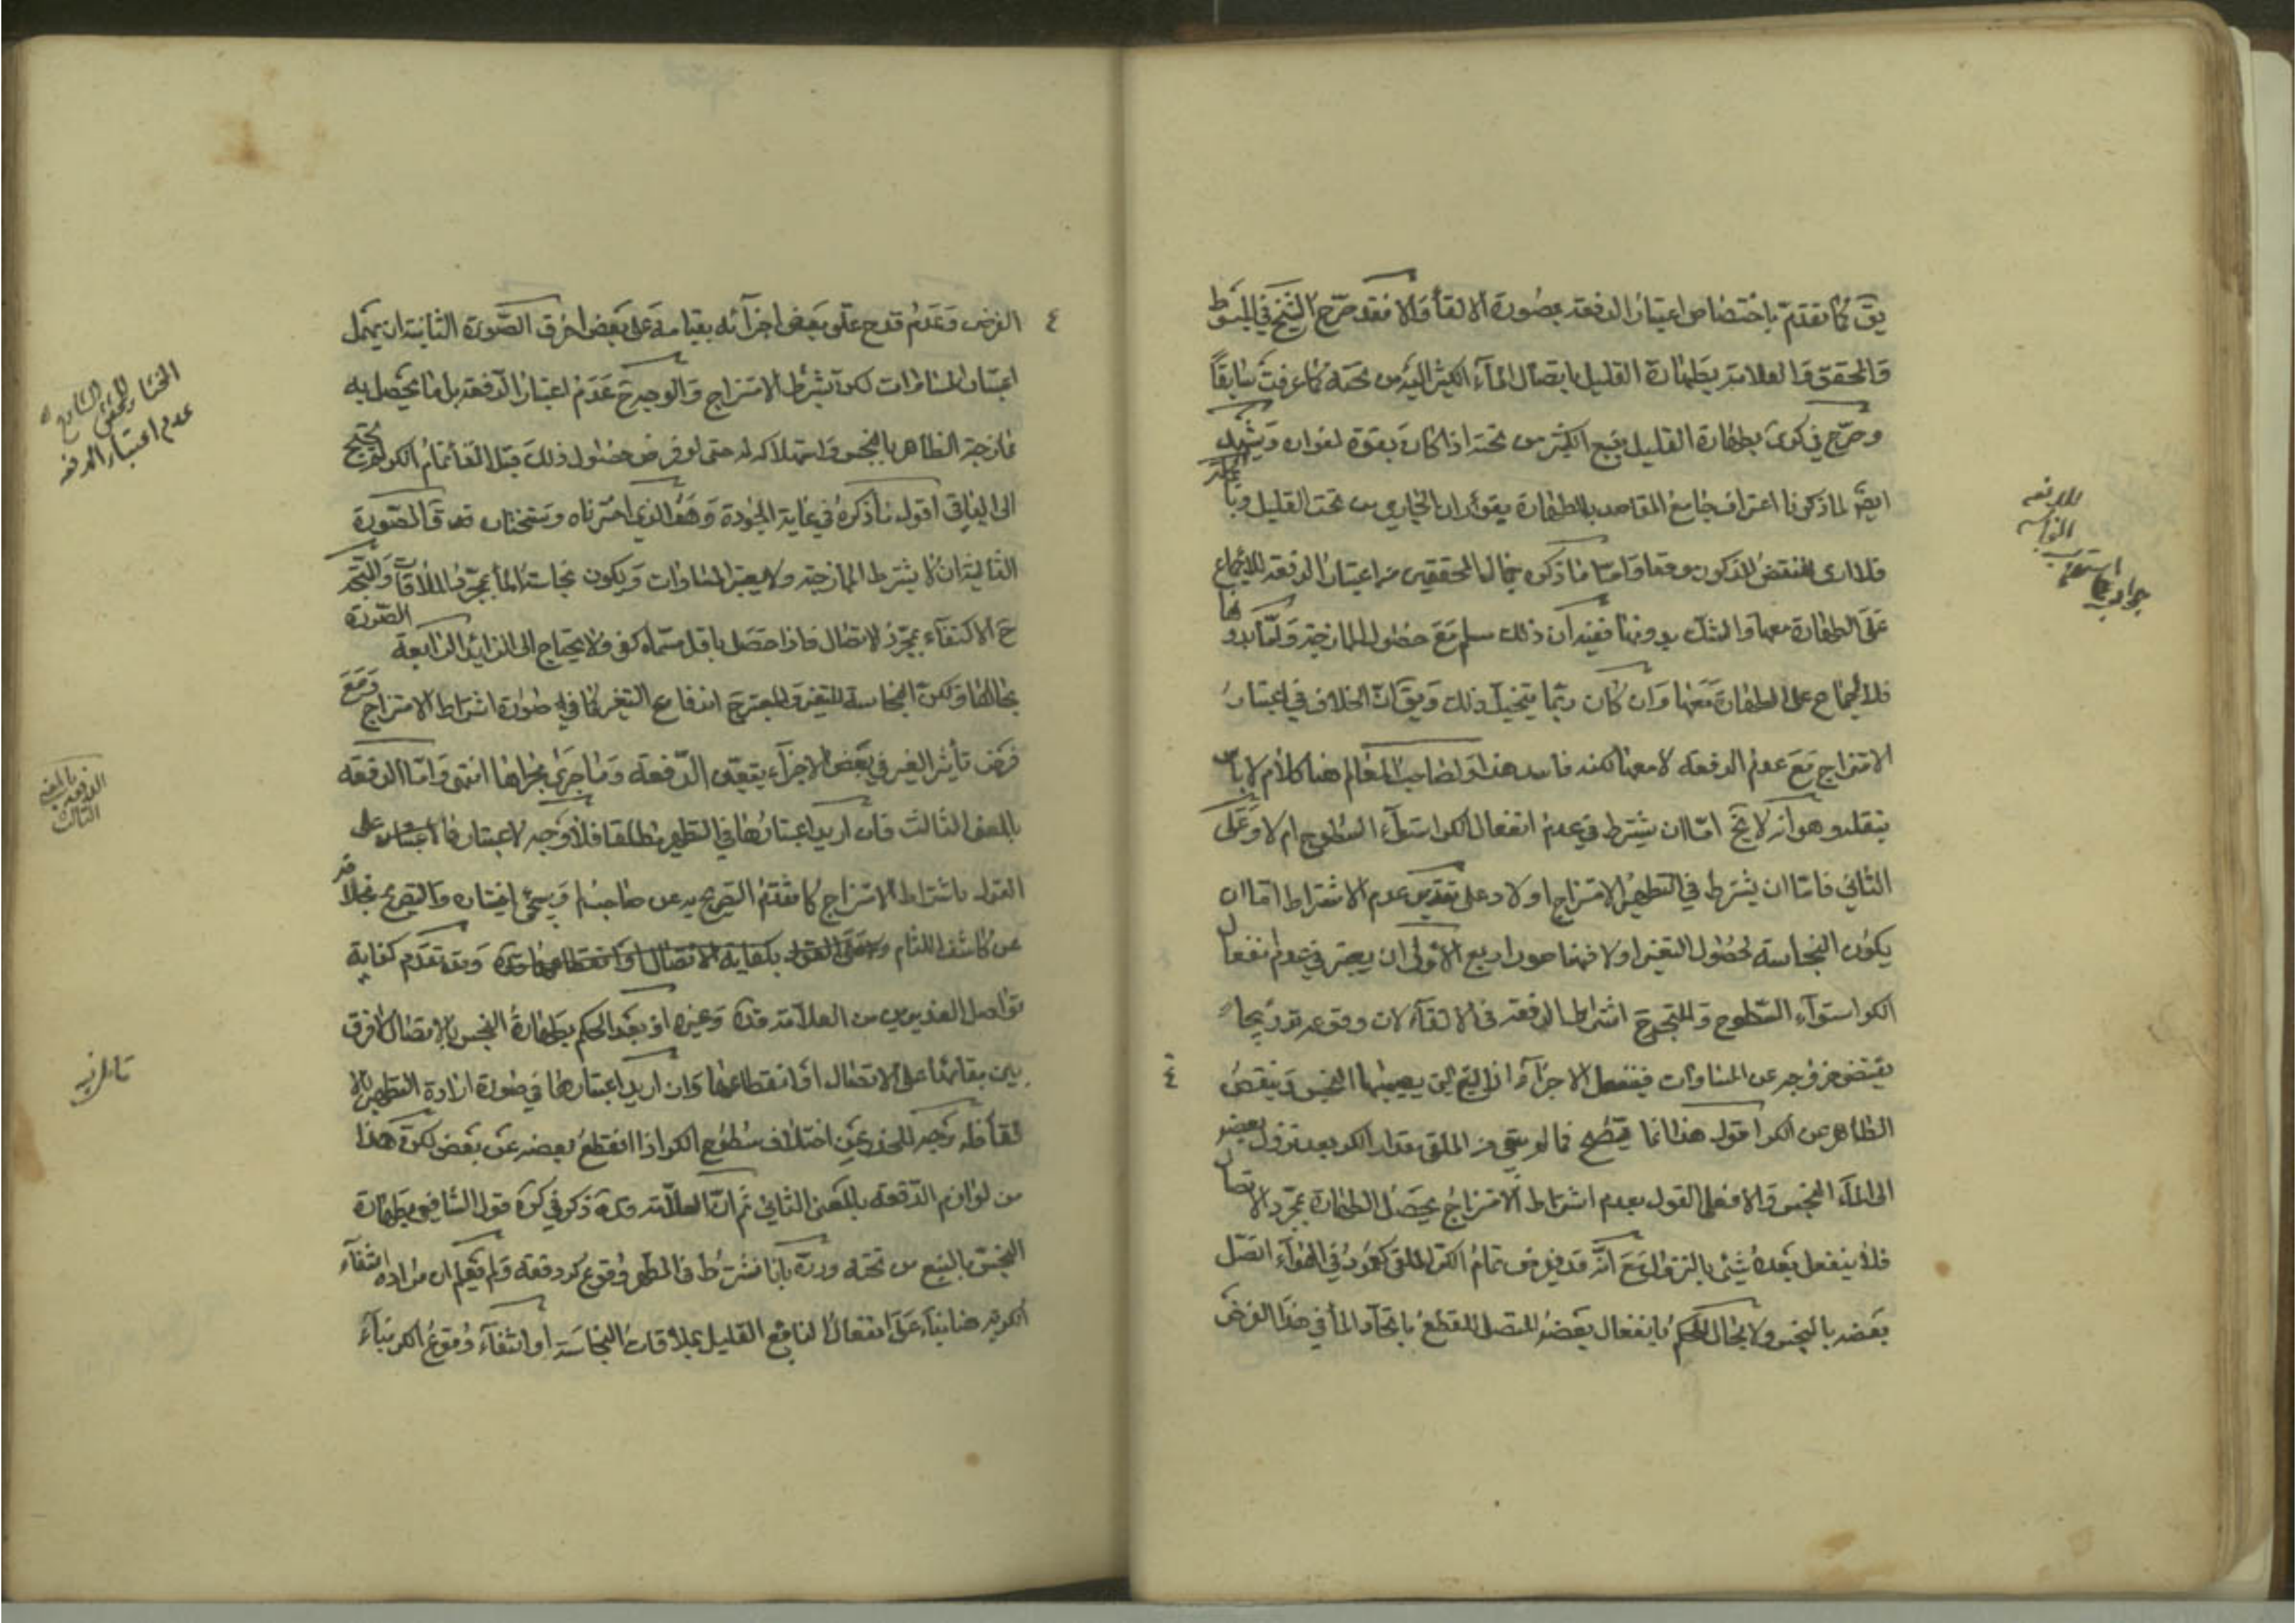 يق كما تقدم باختصاص اعتبار الدفعة بصورة الالقاء والا فقد صرح الشيخ في المبسوط
والمحقق والعلامة بطهارة القليل بايصال الماء الكثير اليه من تحته كما عرفت سابقاً
وصرح في كرى بطهارة القليل بنبع الكثير من تحته اذا كان بقوة لفوران ويشهد
ايضا لما ذكرنا اعتراف جامع المقاصد بالطهارة بفوران الجاري من تحت القليل
فلا ارى للنقض المذكور موقعا واما ما ذكره جمال المحققين من اعتبار الدفعة للاجماع
على الطهارة معها والشك بدونها ففيه ان ذلك سلم مع حصول الممازجة واما بدونها
فلا اجماع على الطهارة معها وان كان ربما يتخيل ذلك ويق ان الخلاف في اعتبار
الامتزاج مع عدم الدفعة لا معها لكنه فاسد هذا ولصاحب المعالم هنا كلام لا باس
بنقله وهو انه لا يخ اما ان يشترط في عدم انفعال الكر استواء السطوح ام لا وعلى
الثاني فاما ان يشترط في التطهير الامتزاج او لا وعلى تقدير عدم الاشتراط اما ان
يكون النجاسة لحصول التغير او لا فهنا صور اربع الاولى ان يعتبر في عدم انفعال
الكر استواء السطوح والمتجه ح اشتراط الدفعة في الالقاء لان وقوعه تدريجا
يقتضي خروجه عن المساوات فينفعل الاجزاء الذي يصيبها النجس وينقص
الطاهر عن الكر اقول هذا انما يتضح فما لو بقي من الملقى مقدار الكر بعد نزول بعضه
الى الماء النجس والا فعلى القول بعدم اشتراط الامتزاج يحصل الطهارة بمجرد الاتصال
فلا ينفعل بعده شئ بالنزول مع انه قد يفرض تمام الكر الملقى كعمود في الهواء اتصل
بعضه بالنجس ولا مجال للحكم بانفعال بعضه المتصل للقطع باتحاد الماء في هذا الفرض
الفرض وعدم قدح علو بعض اجزائه بقيامه على بعض اخرى الصورة الثانية ان يهمل
اعتبار المساوات لكن يشترط الامتزاج والوجه ح عدم اعتبار الدفعة بل ما يحصل به
ممازجة الطاهر بالنجس واستهلاكه له حتى لو فرض حصول ذلك قبل القاء تمام الكر لم يحتج
الى الباقي اقول ما ذكره في غاية الجودة وهو الذي اخترناه وسنختاره قال الصورة
الثالثة ان لا يشترط الممازجة ولا يعتبر المساوات ويكون نجاسة الماء بمجرد الملاقات والمتجه
ح الاكتفاء بمجرد الاتصال فاذا حصل باقل مسماه كفى ولا يحتاج الى الزائد الصورة الرابعة
بحالها ولكن النجاسة للتغير والمعتبر ح اندفاع التغير كما في صورة اشتراط الامتزاج ومع
فرض تأثير التغير في بعض الاجزاء يتعين الدفعة وما جرى مجراها انتهى واما الدفعة
بالمعنى الثالث فان اريد اعتبارها في التطهير مطلقا فلا وجه لاعتبارها على
القول باشتراط الامتزاج كما تقدم التصريح به عن صاحب لم ويجئ اختياره والتصريح بخلافه
عن كاشف اللثام وعلى القول بكفاية الاتصال وقد تقدم كفاية
تواصل الغديرين من العلامة قده وغيره اذ بعد الحكم بطهارة النجس بالاتصال لا فرق
بين بقائها على الاتصال او انقطاعها وان اريد اعتبارها في صورة ارادة التطهير بالا
لقاء فله وجه للحذر عن اختلاف سطوح الكر اذا انقطع بعضه عن بعض لكن هذا
من لوازم الدفعة بالمعنى الثاني ثم ان العلامة قده ذكر في كره قول الشافعي بطهارة
النجس بالنبع من تحته ورده بانا نشترط في المطهر وقوع كر دفعة ولم يعلم ان مراده انتفاء
الكرية هنا بناء على انفعال النابع القليل بملاقات النجاسة او انتفاء وقوع الكر بناء
٤
٤
المختار للمحقق الشارح
عدم اعتبار الدفعة
الدفعة بالمعنى
الثالث